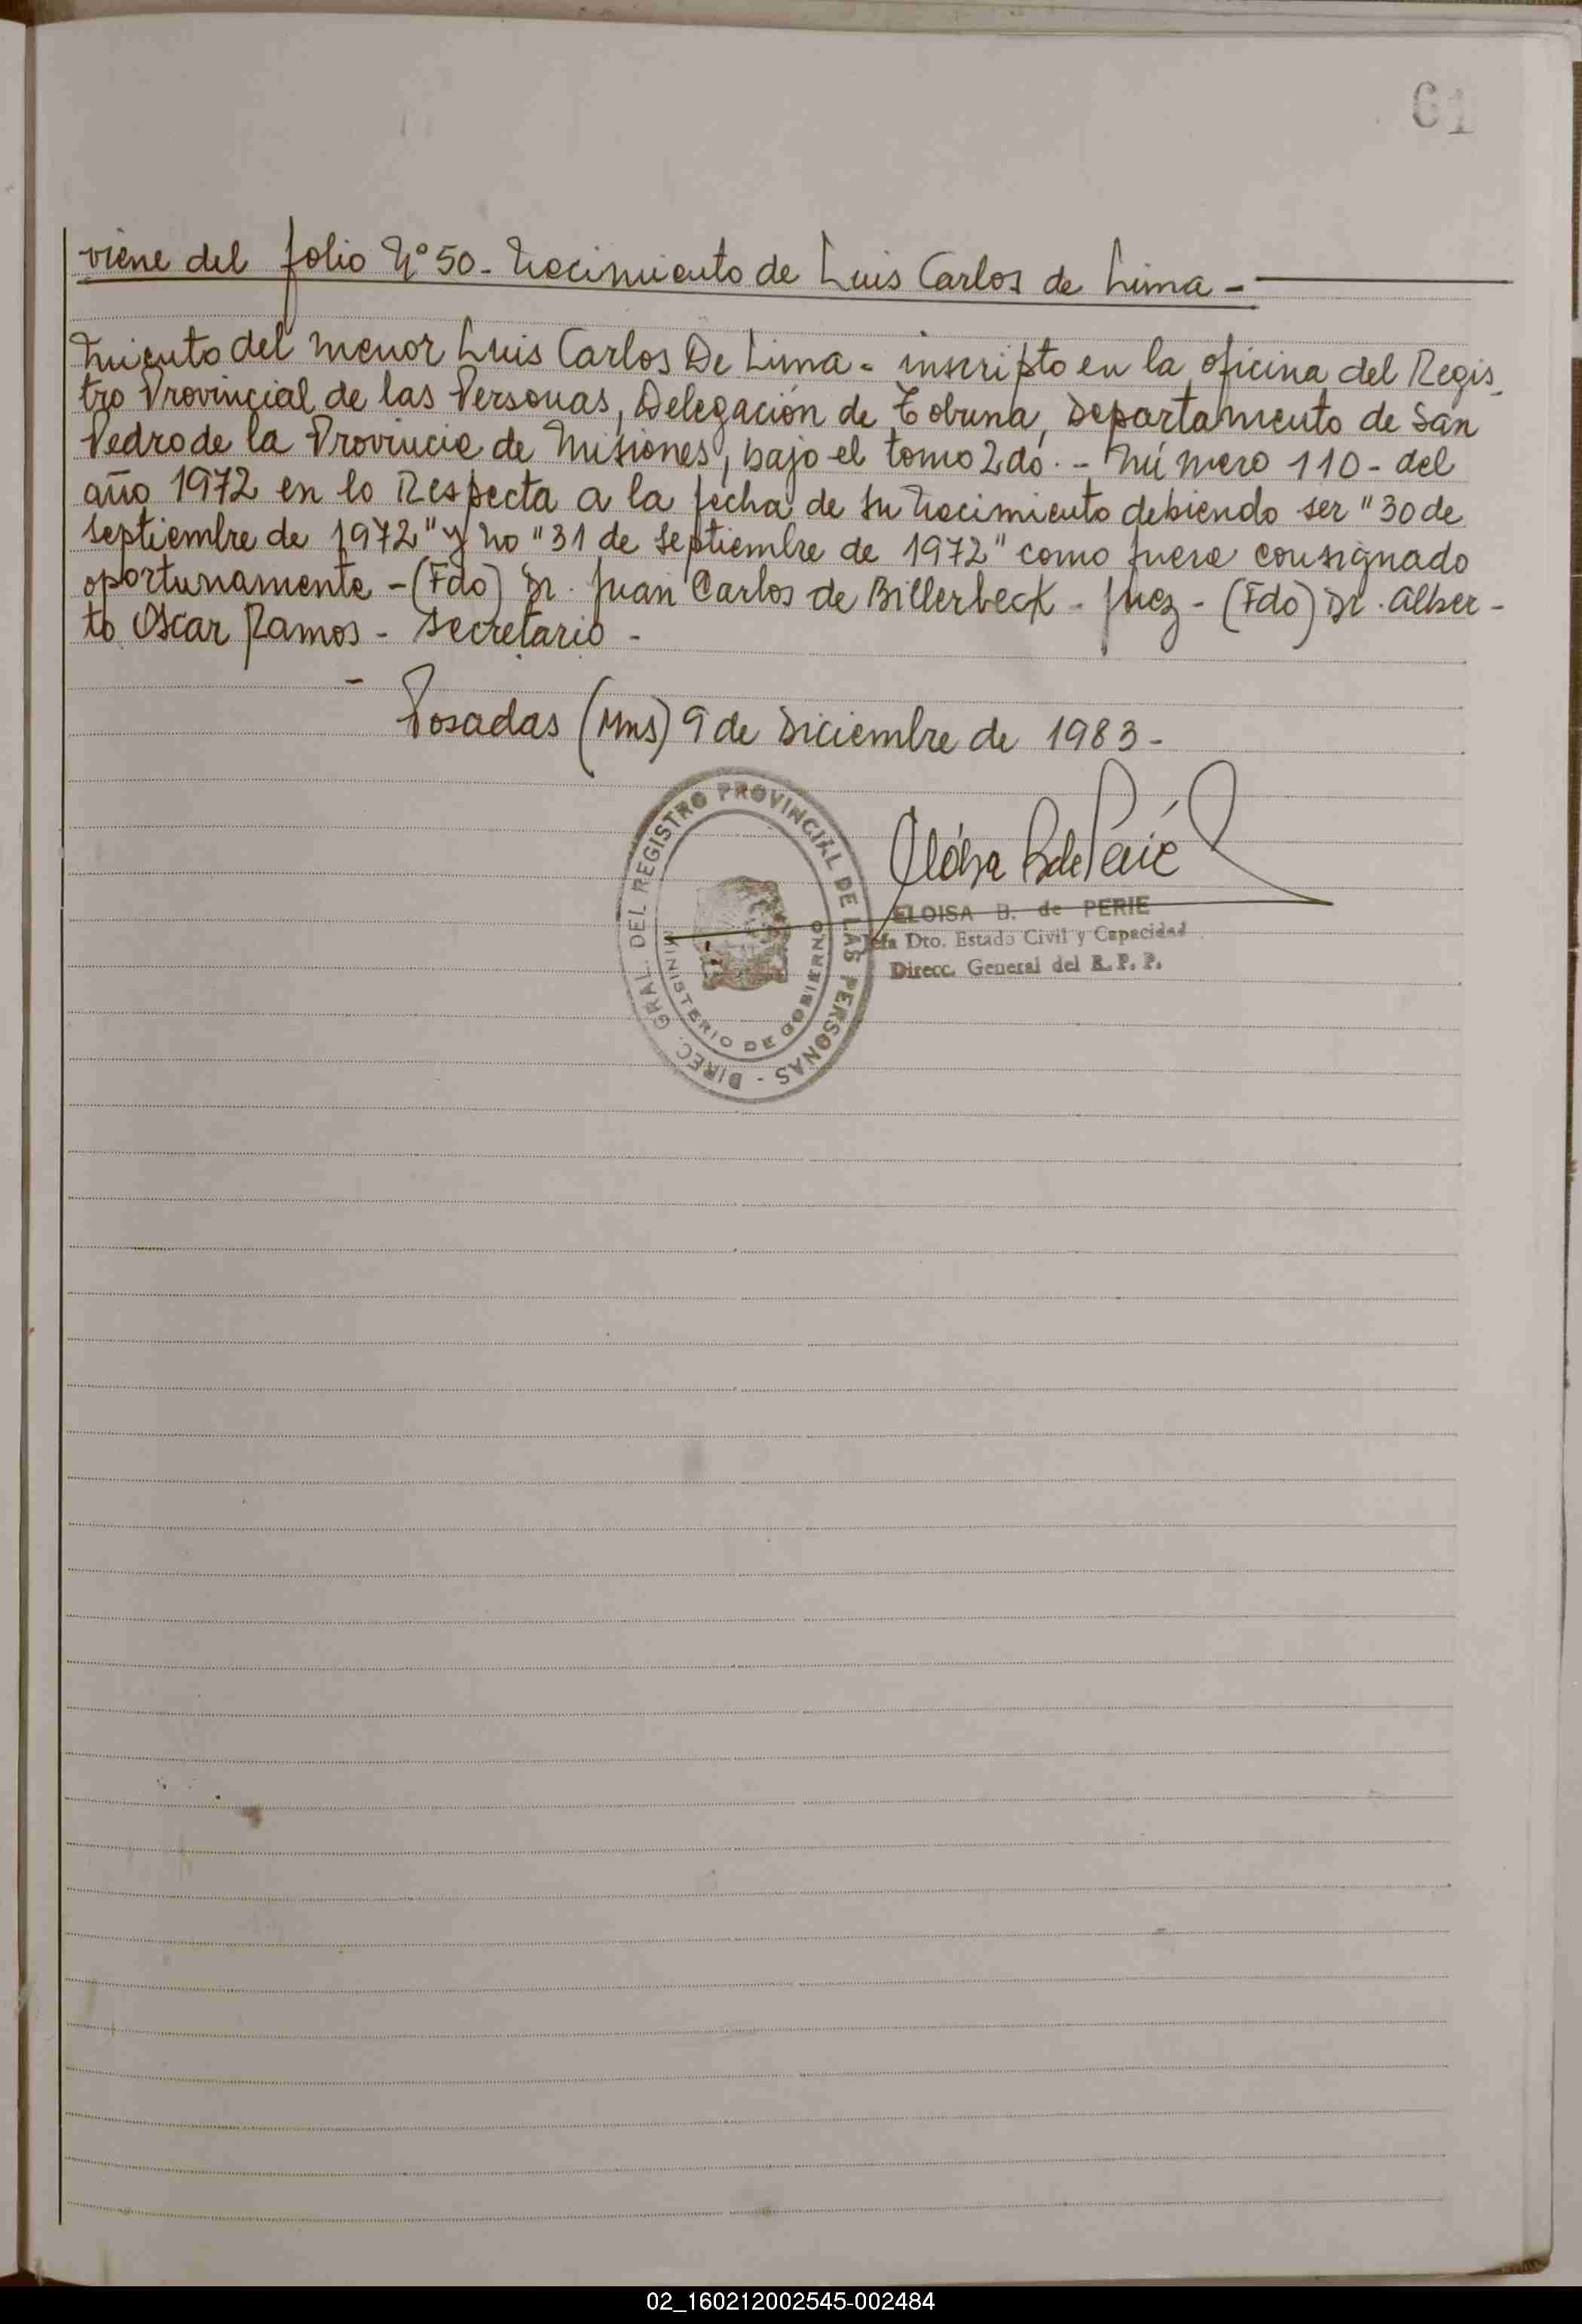 61
viene del folio Nº 50 - Nacimiento de Luis Carlos de Lima -
miento del menor Luis Carlos De Lima - inscripto en la oficina del Regis-
tro Provincial de las Personas, Delegación de Tobuna, Departamento de San
Pedro de la Provincia de Misiones, bajo el tomo 2do. - Número 110 - del
año 1972 en lo Respecta a la fecha de su Nacimiento debiendo ser "30 de
septiembre de 1972" y no "31 de septiembre de 1972" como fuera consignado
oportunamente - (Fdo) Dr. Juan Carlos de Billerbeck - Juez - (Fdo) Dr. Alber-
to Oscar Ramos - Secretario -
Posadas (Mns) 9 de Diciembre de 1983 -
DIREC. GRAL. DEL REGISTRO PROVINCIAL DE LAS PERSONAS -
MINISTERIO DE GOBIERNO
ELOISA B. de PERIE
Jefa Dto. Estado Civil y Capacidad
Direcc. General del R. P. P.
02_160212002545-002484